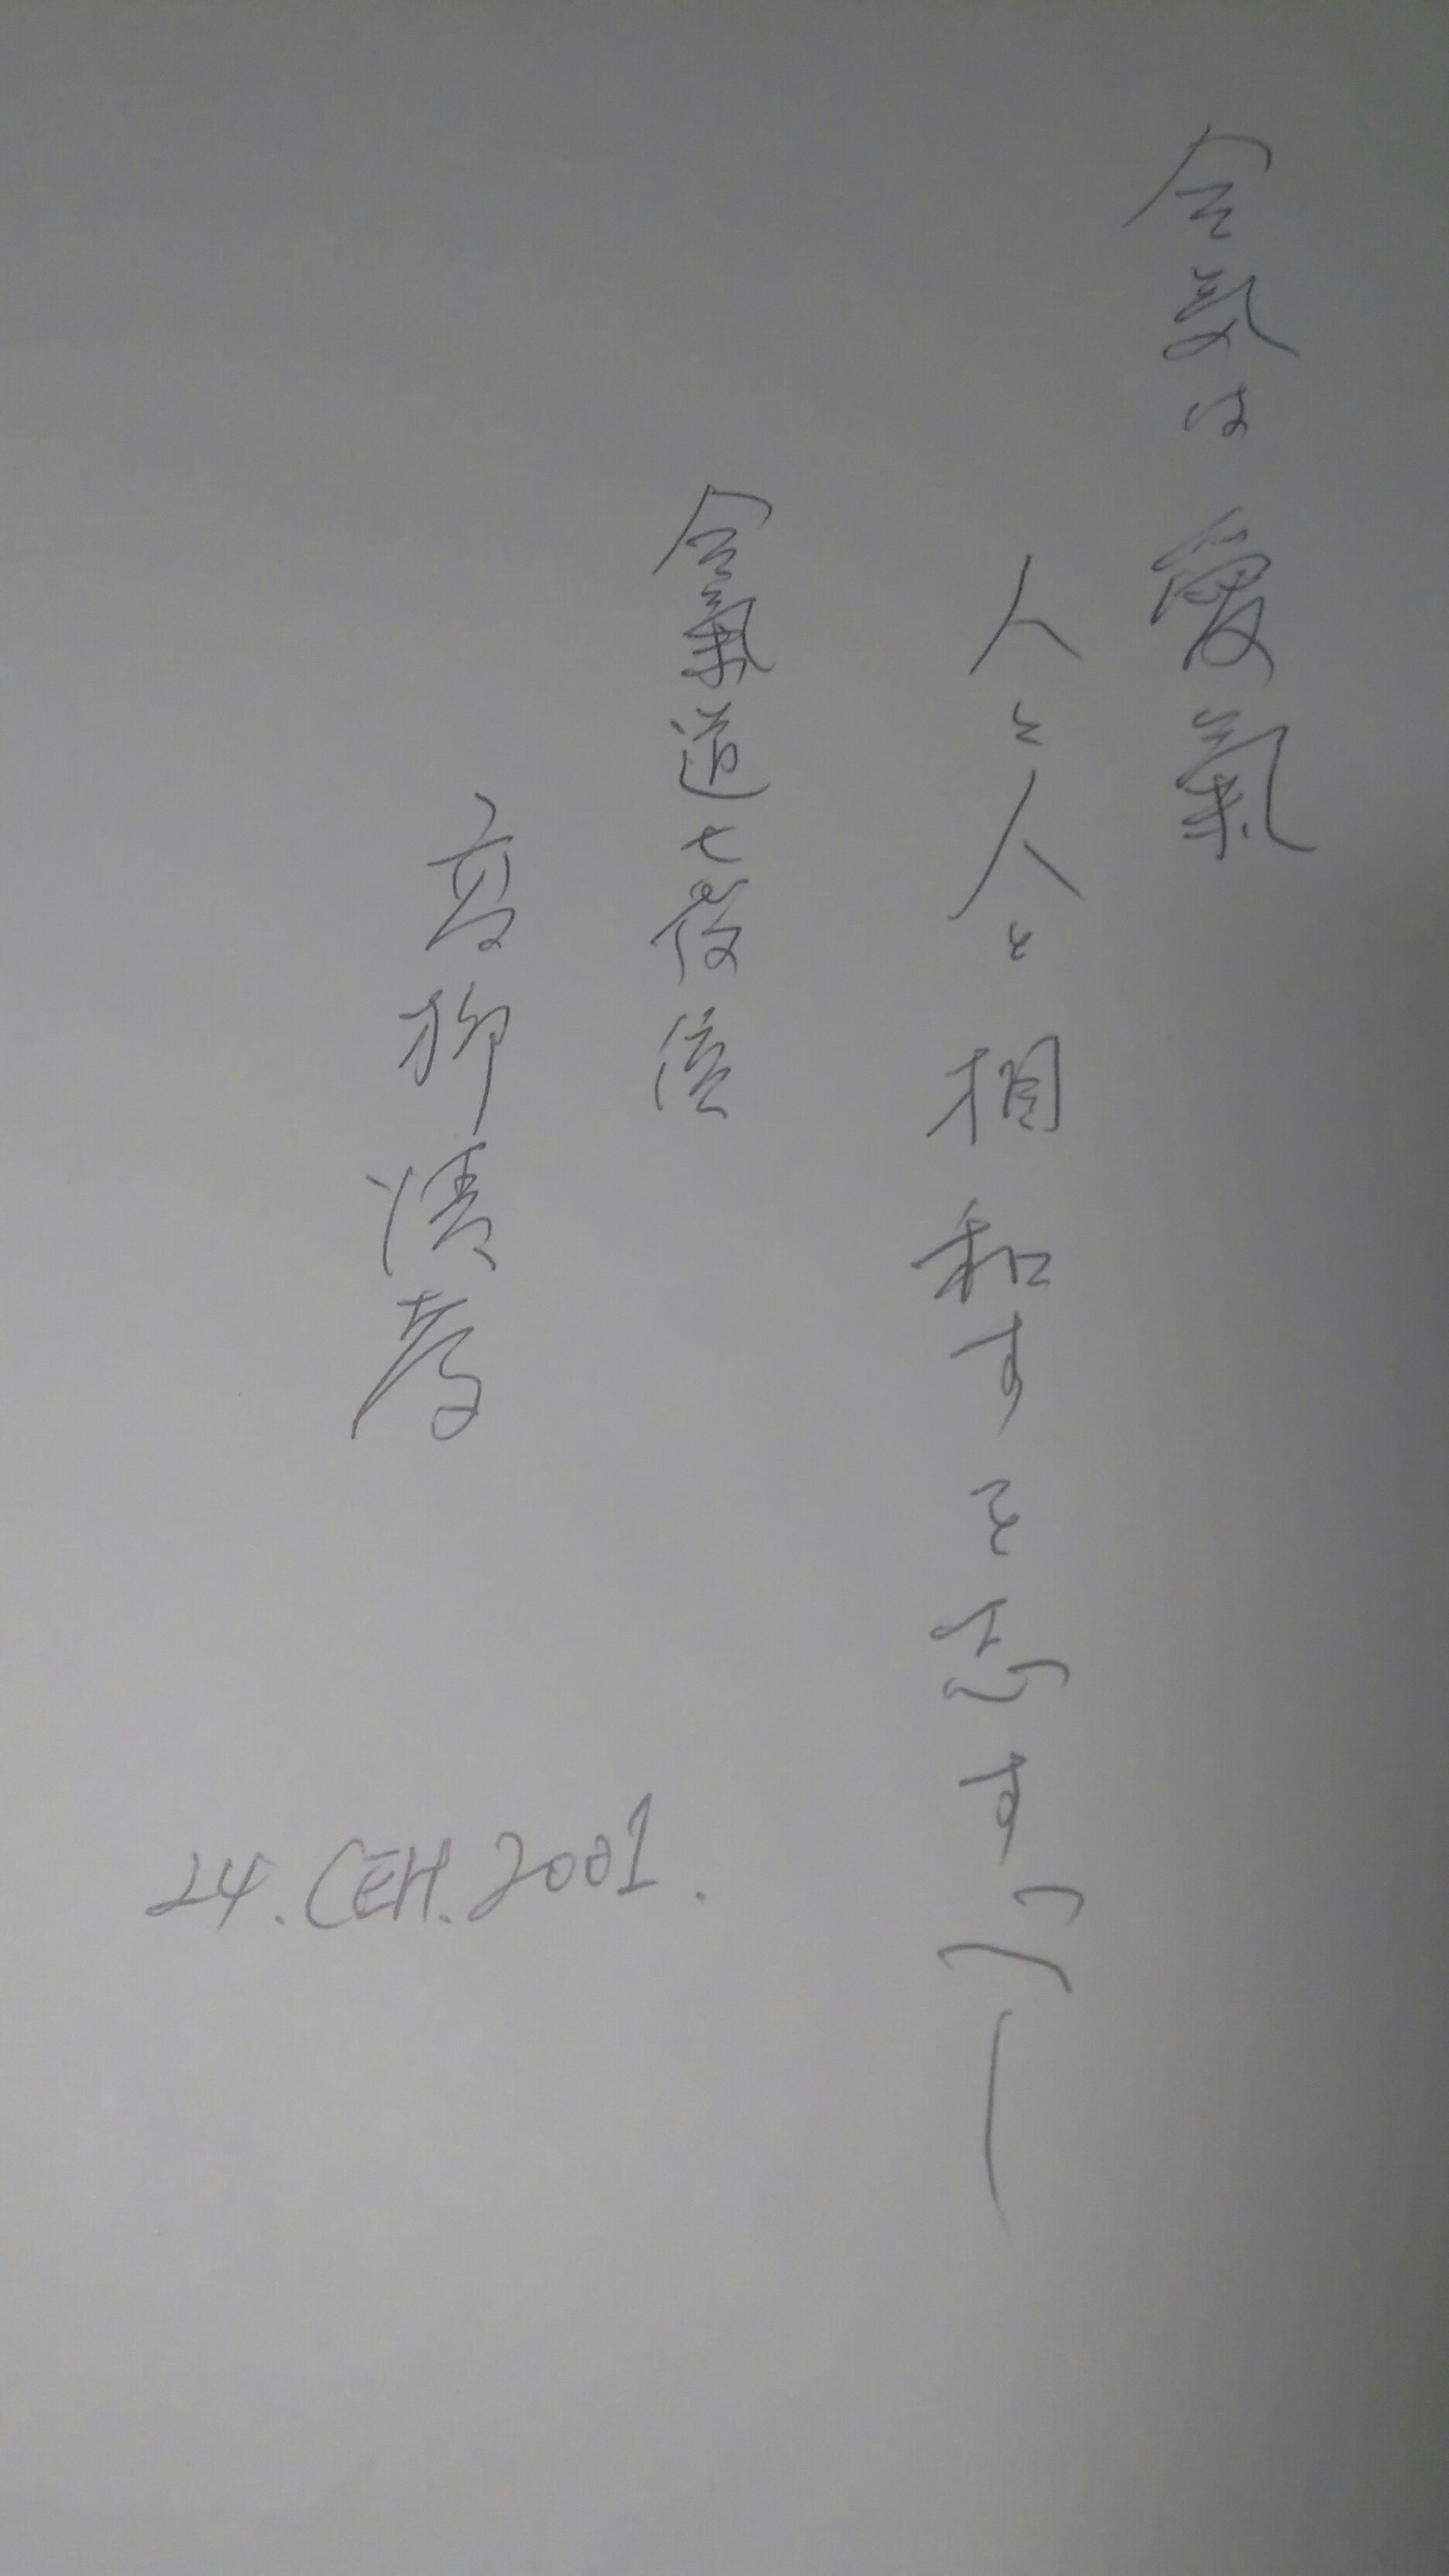 合氣は愛氣
人と人と相和すを志すべし
合氣道七段位
高柳清孝
24. СЕН. 2001.